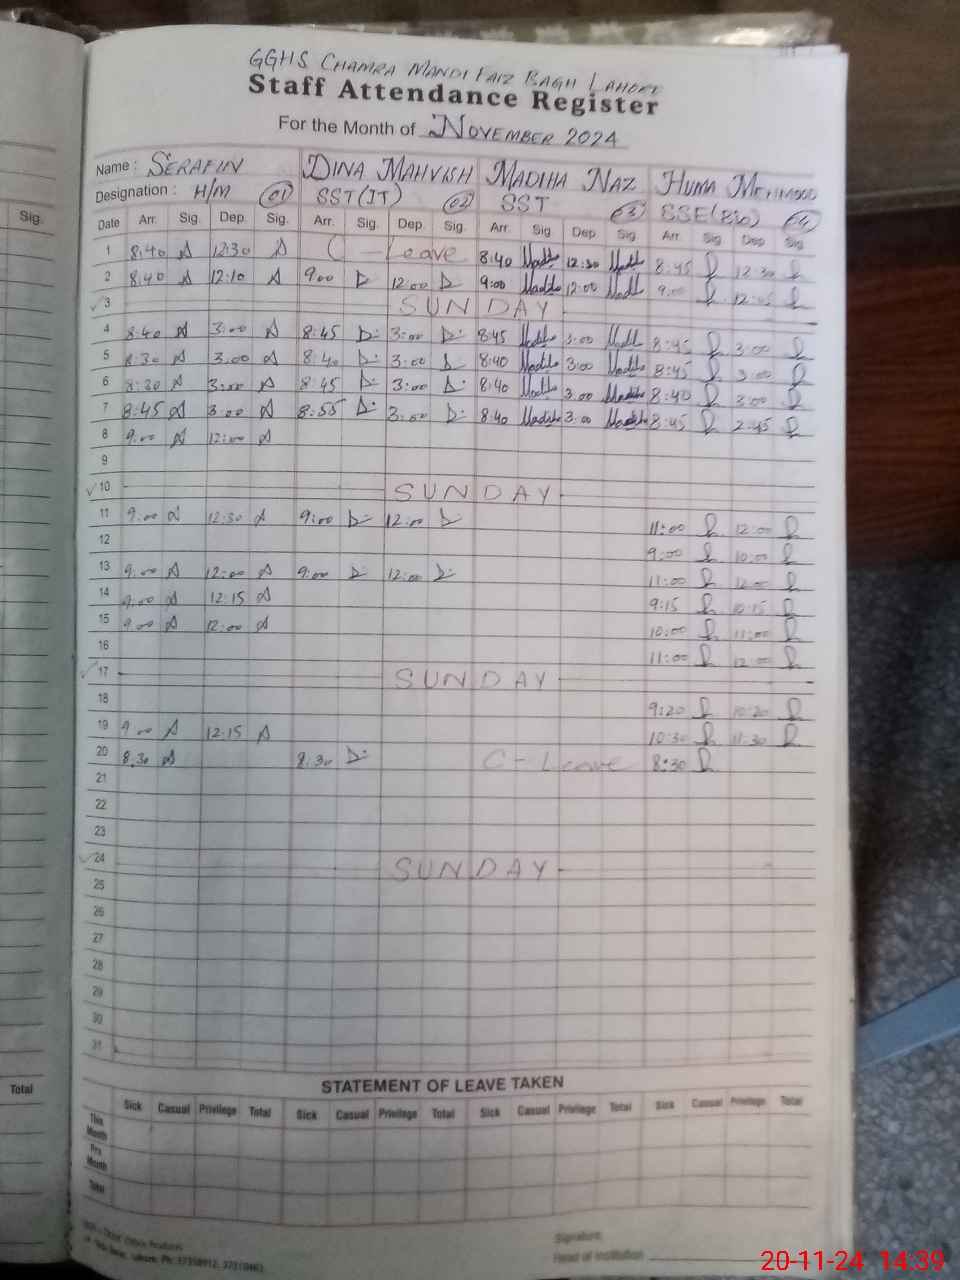 GGHS CHAMRA MANDI FAIZ BAGH LAHORE
Staff Attendance Register
For the Month of NOVEMBER 2024
Name : SERAFIN DINA MAHVISH MADIHA NAZ HUMA MEHMOOD
Designation : H/M 01 SST (IT) 02 SST 03 SSE (Bio) 04
Sig. Date Arr. Sig. Dep. Sig. Arr. Sig. Dep. Sig. Arr. Sig Dep. Sig. Arr. Sig Dep Sig
1 8:40 12:30 C - Leave 8:40 12:30 8:45 12:30
2 8:40 12:10 9:00 12:00 9:00 12:00 9:00 12:05
3 SUNDAY
4 8:40 3:00 8:45 3:00 8:45 3:00 8:45 3:00
5 8:30 3:00 8:40 3:00 8:40 3:00 8:45 3:00
6 8:30 3:00 8:45 3:00 8:40 3:00 8:40 3:00
7 8:45 3:00 8:55 3:00 8:40 3:00 8:45 2:45
8 9:00 12:00
9
10 SUNDAY
11 9:00 12:30 9:00 12:00 11:00 12:00
12 9:00 10:00
13 9:00 12:00 9:00 12:00 11:00 12:00
14 9:00 12:15 9:15 10:15
15 9:00 12:00 10:00 11:00
16 11:00 12:00
17 SUNDAY
18 9:20 10:20
19 9:00 12:15 10:30 11:30
20 8:30 8:30 C - Leave 8:30
21
22
23
24 SUNDAY
25
26
27
28
29
30
31
Total
STATEMENT OF LEAVE TAKEN
Sick Casual Privilege Total Sick Casual Privilege Total Sick Casual Privilege Total Sick Casual Privilege Total
This Month
Prv. Month
Total
Signature
Head of Institution
20-11-24 14:39